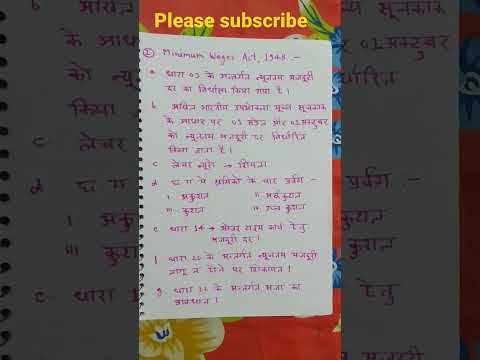 Please subscribe
① Minimum Wages Act, 1948 :-
a धारा 03 के अन्तर्गत न्यूनतम मजदूरी
दर का निर्धारण किया गया है।
b अखिल भारतीय उपभोक्ता मूल्य सूचकांक
के आधार पर 01 अप्रैल और 01 अक्टूबर
को न्यूनतम मजदूरी दर निर्धारित
किया जाता है।
c लेबर ब्यूरो → शिमला
d छ ग में श्रमिकों के चार प्रवर्ग :-
i अकुशल ii अर्धकुशल
iii कुशल iv उच्च कुशल
e धारा 14 → ओवर टाइम कार्य हेतु
मजदूरी दर।
f धारा 20 के अन्तर्गत न्यूनतम मजदूरी
लागू न होने पर शिकायत।
g धारा 22 के अन्तर्गत सजा का
प्रावधान।